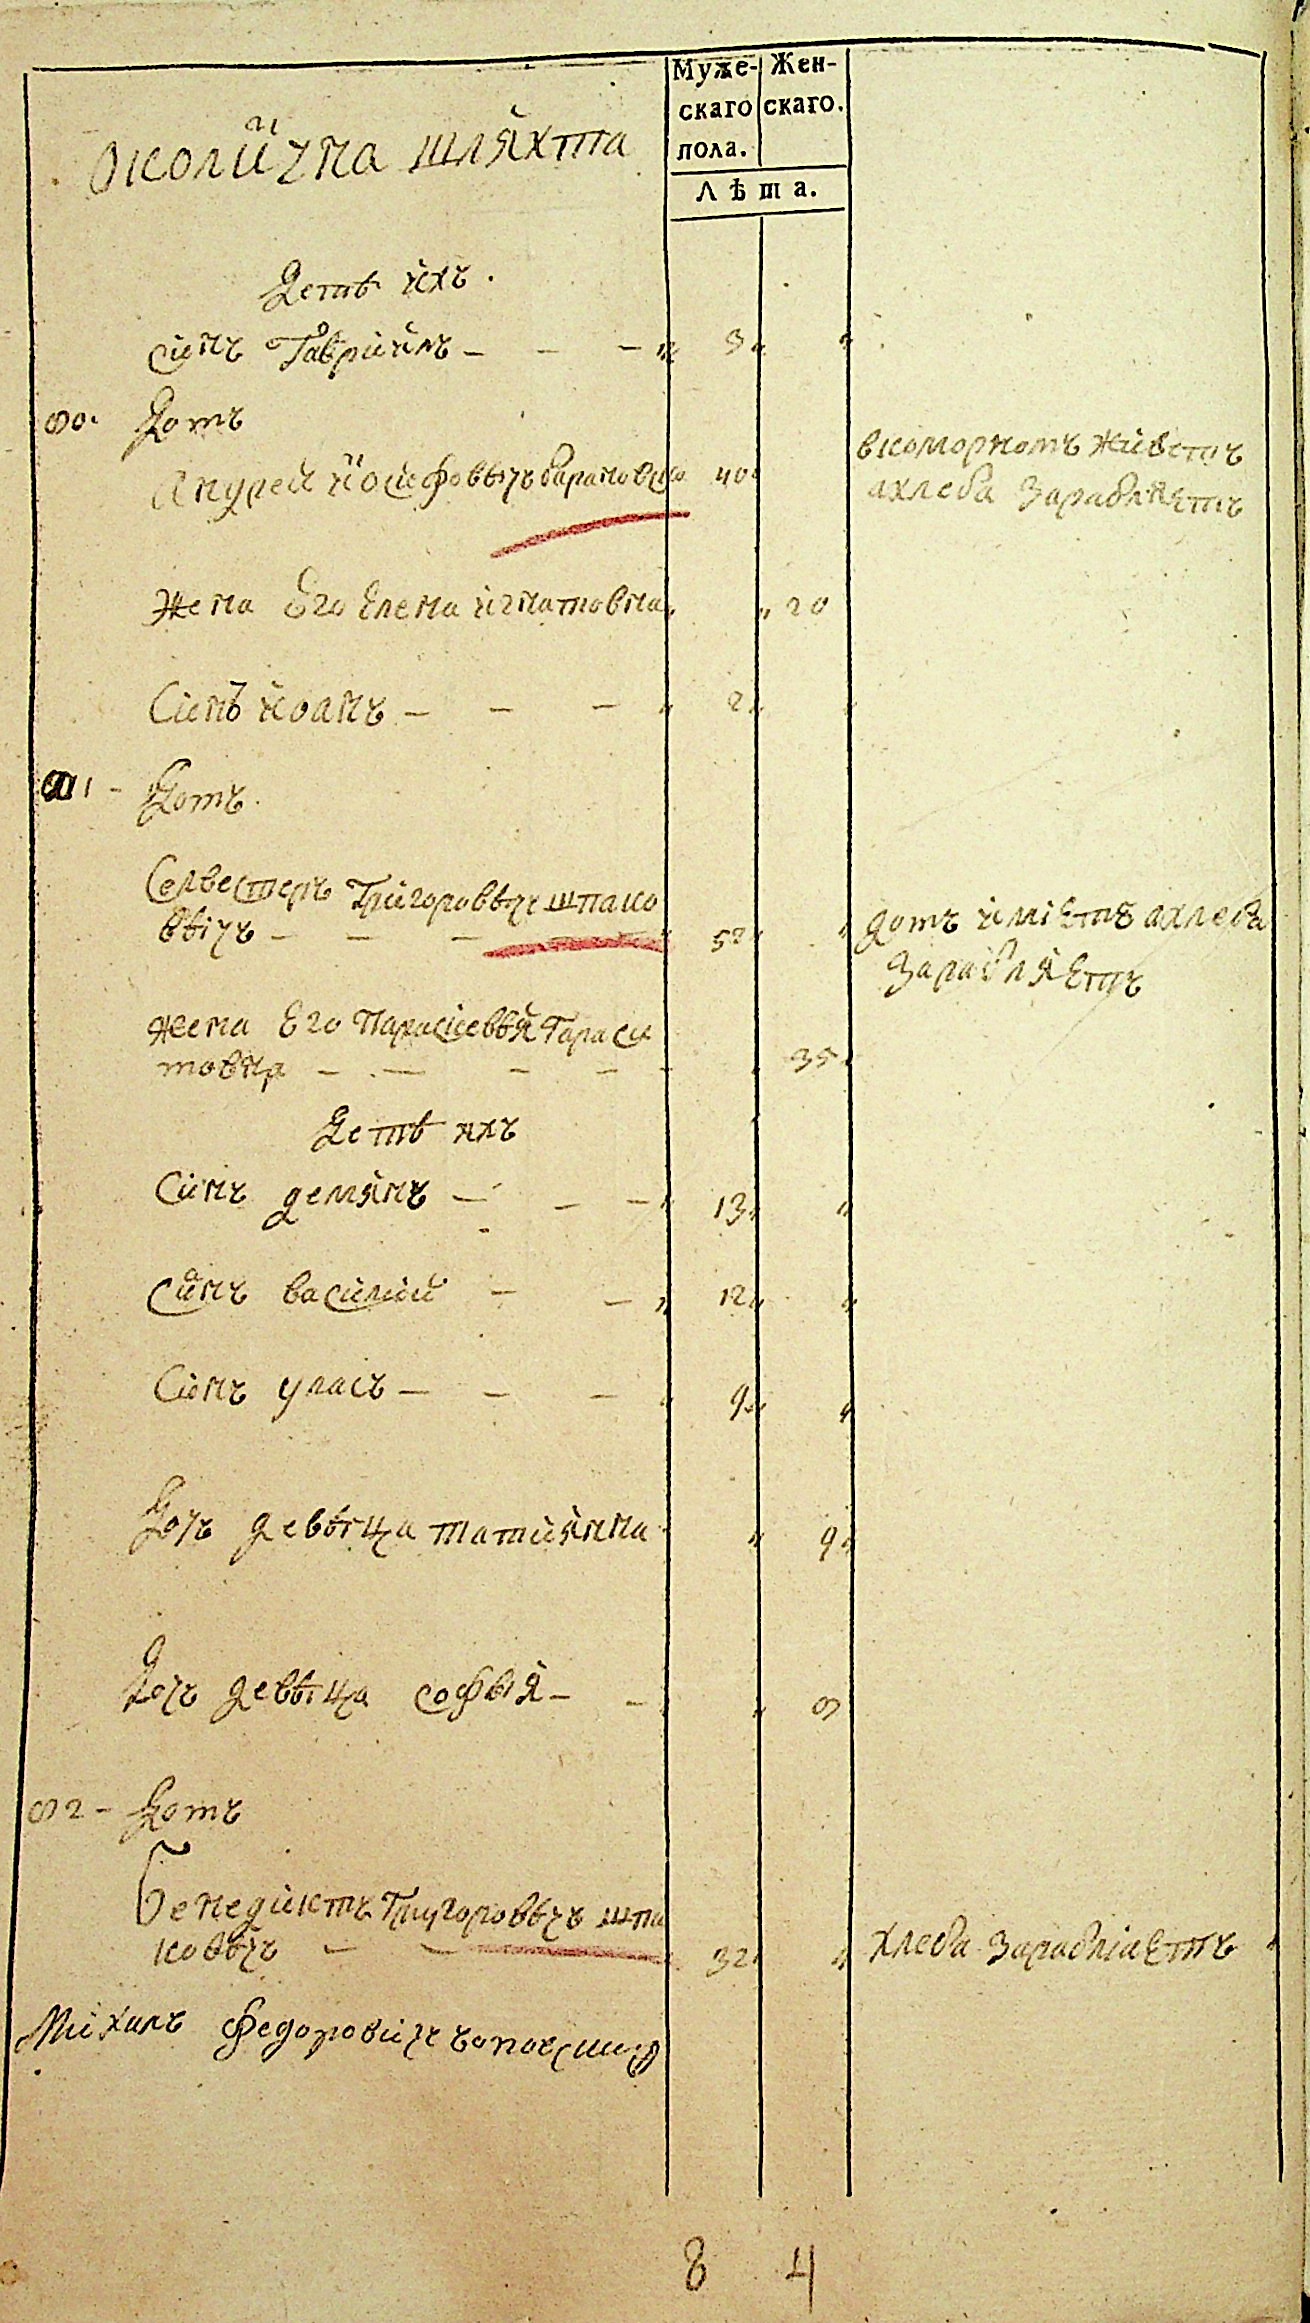 Муже- Жен-
скаго скаго.
пола.
Лѣта.
околична шляхта
Дети ихъ.
синъ Гавриилъ 3
80. Домъ
Андрей Иосифовичъ барановски 40 в коморномъ живетъ
а хлеба зарабляетъ
жена Его Елена игнатовна 20
Синъ иоанъ 2
81 Домъ
Селвестеръ Григоровичъ шпако
вичъ 52 домъ имиетъ а хлеба
зарабляетъ
жена Его Парасковия Гараси
мовна 35
Дети ихъ
Синъ демянъ 13
Синъ василий 12
Синъ уласъ 9
Дочъ девица татиянна 9
Дочъ девица софия 8
82 Домъ
Бенедиктъ Григоровичъ шпа
ковичъ 32 хлеба зарабляетъ
Михалъ Федоровичъ
8 4